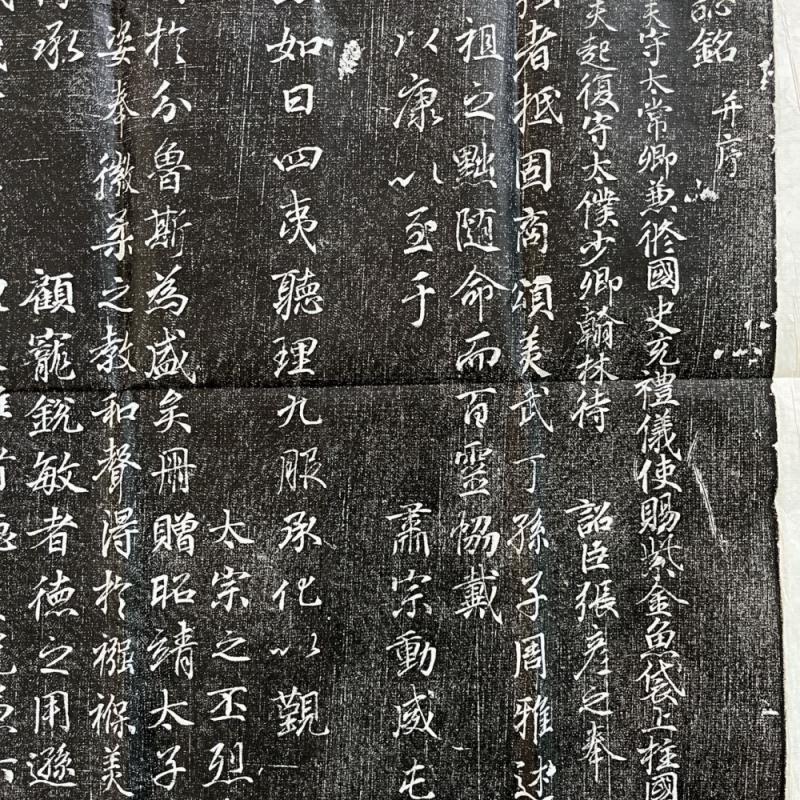 誌銘 并序
夫守太常卿兼修國史充禮儀使賜紫金魚袋上柱國
夫起復守太僕少卿翰林待 詔臣張彦之奉
者抵固商頌美武丁孫子周雅述
祖之 隨命而百靈協戴
以康以至于 肅宗動威屯
如日四夷聽理九服承化以觀
太宗之丕烈
於分魯斯為盛矣冊贈昭靖太子
姿奉徽柔之教和聲得於襁褓美
承 顧寵銳敏者德之用遜